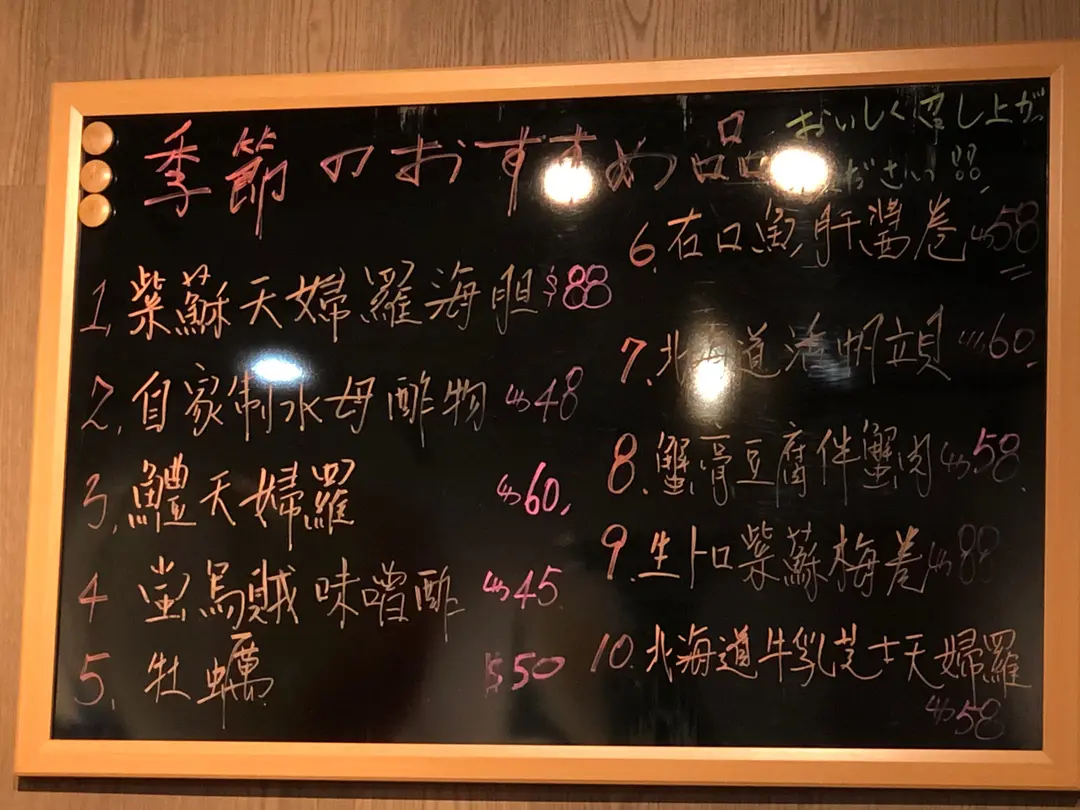 季節のおすすめ品
おいしく召し上が
ださい!!
1. 紫蘇天婦羅海胆 $88
2. 自家制水母酢物 $48
3. 鱧天婦羅 $60
4 蛍烏賊味噌酢 $45
5. 牡蠣 $50
6. 右口魚肝醤巻 $58
7. 北海道活帆立貝 $60
8. 蟹膏豆腐伴蟹肉 $58
9. 生トロ紫蘇梅巻 $88
10. 北海道牛乳芝士天婦羅
$58